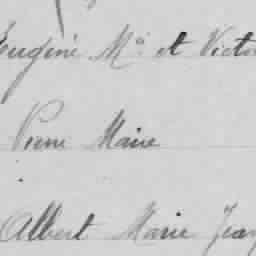 Eugène Mie et Victo
Pierre Marie
Albert Marie Jean